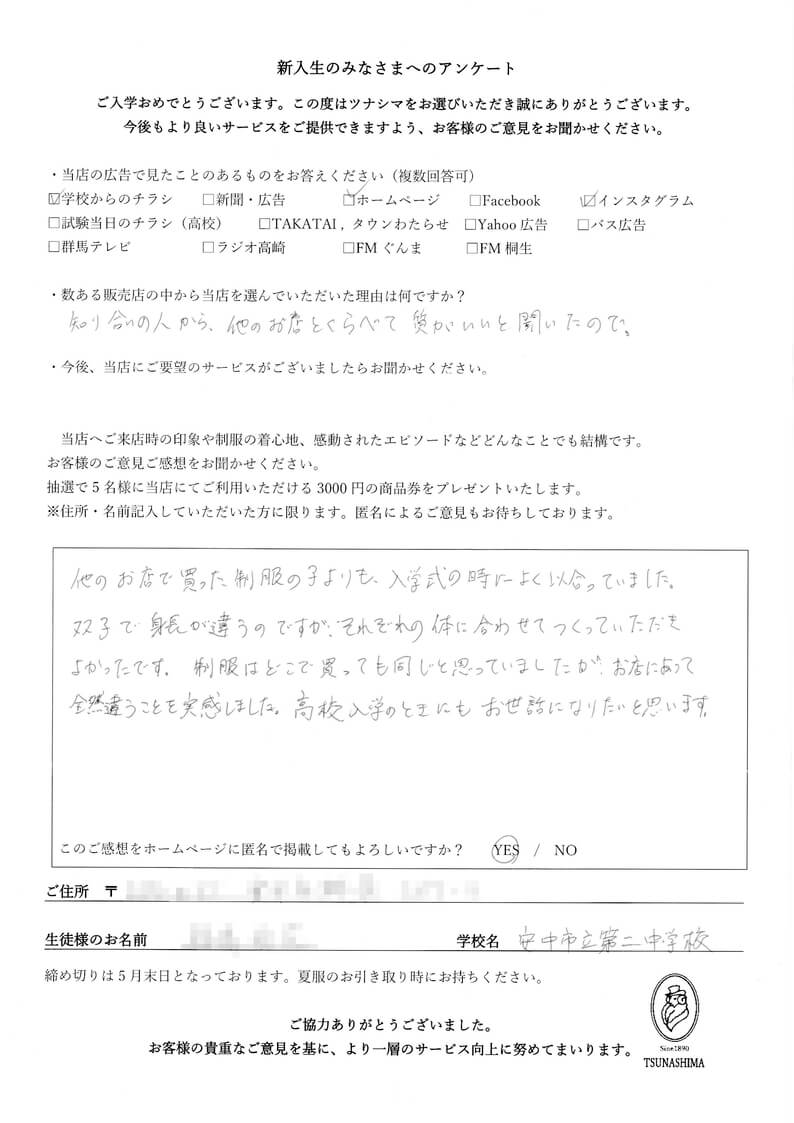 新入生のみなさまへのアンケート
ご入学おめでとうございます。この度はツナシマをお選びいただき誠にありがとうございます。
今後もより良いサービスをご提供できますよう、お客様のご意見をお聞かせください。
・当店の広告で見たことのあるものをお答えください（複数回答可）
☑学校からのチラシ □新聞・広告 ☑ホームページ □Facebook ☑インスタグラム
□試験当日のチラシ（高校） □TAKATAI , タウンわたらせ □Yahoo 広告 □バス広告
□群馬テレビ □ラジオ高崎 □FM ぐんま □FM 桐生
・数ある販売店の中から当店を選んでいただいた理由は何ですか？
知り合いの人から、他のお店とくらべて質がいいと聞いたので。
・今後、当店にご要望のサービスがございましたらお聞かせください。
当店へご来店時の印象や制服の着心地、感動されたエピソードなどどんなことでも結構です。
お客様のご意見ご感想をお聞かせください。
抽選で 5 名様に当店にてご利用いただける 3000 円の商品券をプレゼントいたします。
※住所・名前記入していただいた方に限ります。匿名によるご意見もお待ちしております。
他のお店で買った制服の子よりも、入学式の時によく似合っていました。
双子で身長が違うのですが、それぞれの体に合わせてつくっていただき
よかったです。制服はどこで買っても同じと思っていましたが、お店によって
全然違うことを実感しました。高校入学のときにもお世話になりたいと思います。
このご感想をホームページに匿名で掲載してもよろしいですか？ YES / NO
ご住所 〒
生徒様のお名前 学校名 安中市立第二中学校
締め切りは 5 月末日となっております。夏服のお引き取り時にお持ちください。
ご協力ありがとうございました。
お客様の貴重なご意見を基に、より一層のサービス向上に努めてまいります。
Since1890
TSUNASHIMA